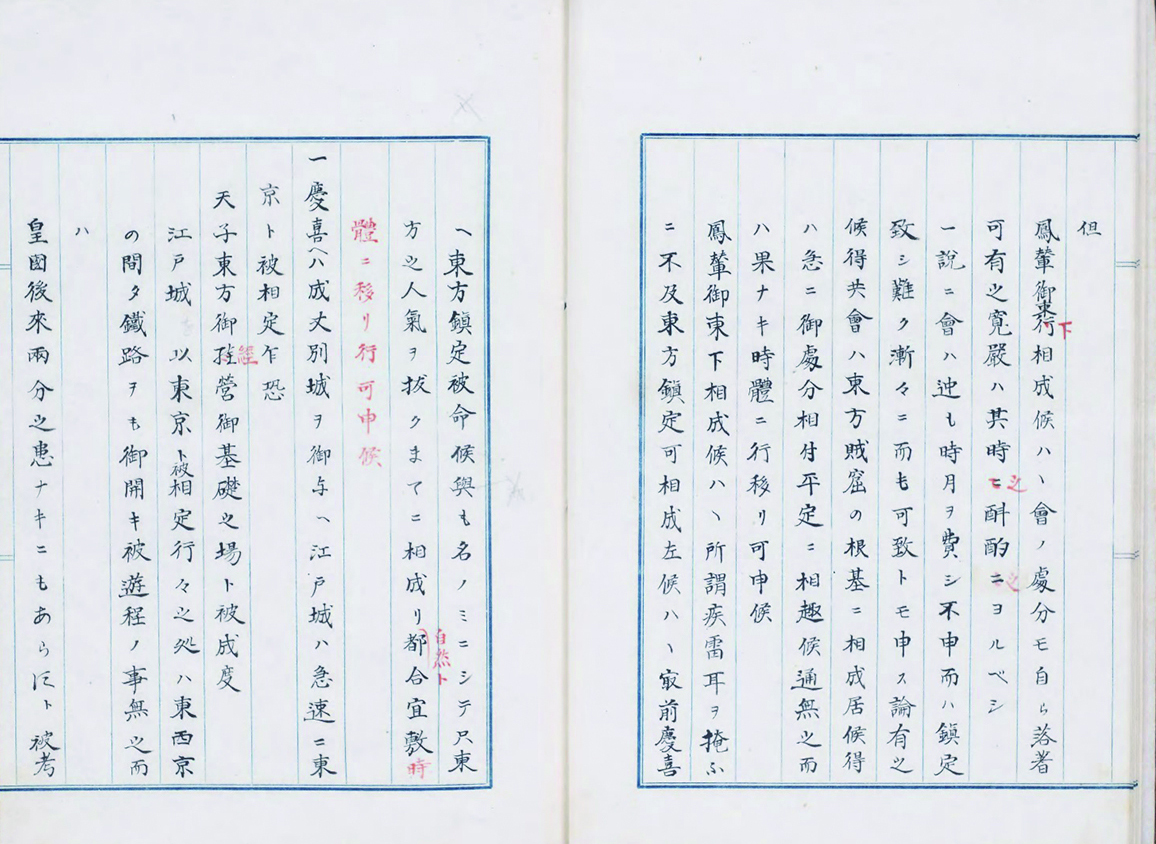 但
鳳輦御東行下相成候ハヽ會ノ處分モ自ら落著
可有之寛嚴ハ其時ニ之斟酌ニヨルベシ
一說ニ會ハ迚も時月ヲ費シ不申而ハ鎮定
致シ難ク漸々ニ而も可致トモ申ス論有之
候得共會ハ東方賊窟の根基ニ相成居候得
ハ急ニ御處分相付平定ニ相趣候通無之而
ハ果ナキ時體ニ行移リ可申候
鳳輦御東下相成候ハヽ所謂疾雷耳ヲ掩ふ
ニ不及東方鎮定可相成左候ハヽ最前慶喜
ヘ東方鎮定被命候與も名ノミニシテ只東
方之人氣ヲ拔クまてニ相成リ都合宜敷
自然ト
時
體ニ移リ行可申候
一慶喜ヘハ成丈別城ヲ御与ヘ江戸城ハ急速ニ東
京ト被相定乍恐
天子東方御經營御基礎之場ト被成度
江戸城以東京ト被相定行々之処ハ東西京
の間タ鐵路ヲも御開キ被遊程ノ事無之而
ハ
皇國後來兩分之患ナキニもあらすト被考